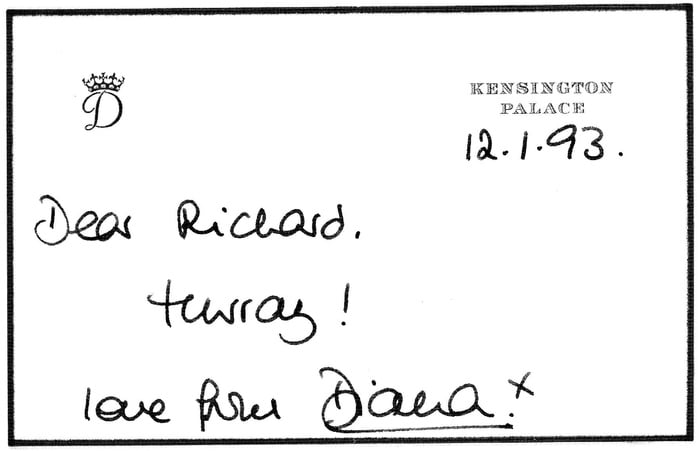 D
KENSINGTON
PALACE
12.1.93.
Dear Richard.
Hurray!
love from Diana. x